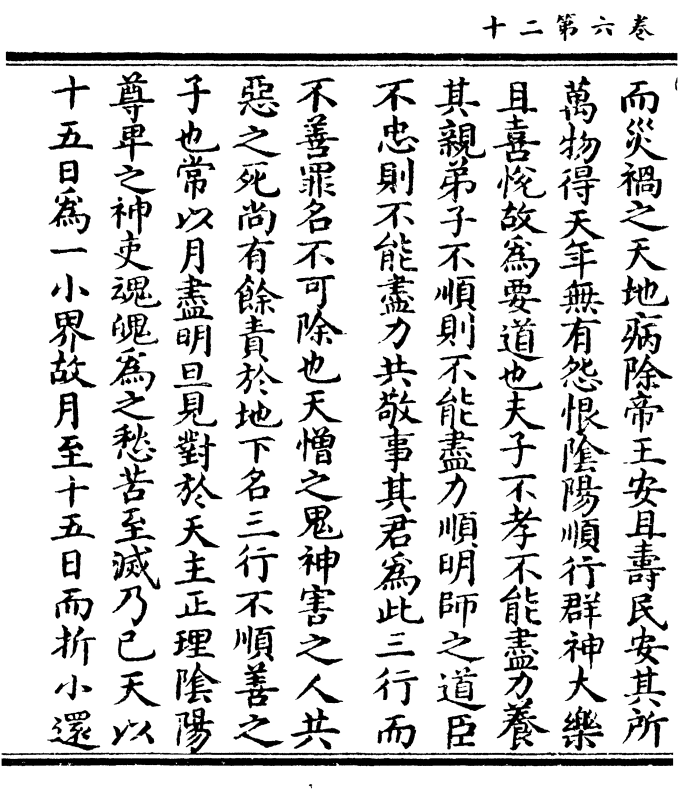 卷六第二十
而災禍之天地病除帝王安且壽民安其所
萬物得天年無有怨恨陰陽順行群神大樂
且喜悅故為要道也夫子不孝不能盡力養
其親弟子不順則不能盡力順明師之道臣
不忠則不能盡力共敬事其君為此三行而
不善罪名不可除也天憎之鬼神害之人共
惡之死尚有餘責於地下名三行不順善之
子也常以月盡明旦見對於天主正理陰陽
尊卑之神吏魂魄為之愁苦至滅乃已天以
十五日為一小界故月至十五日而折小還